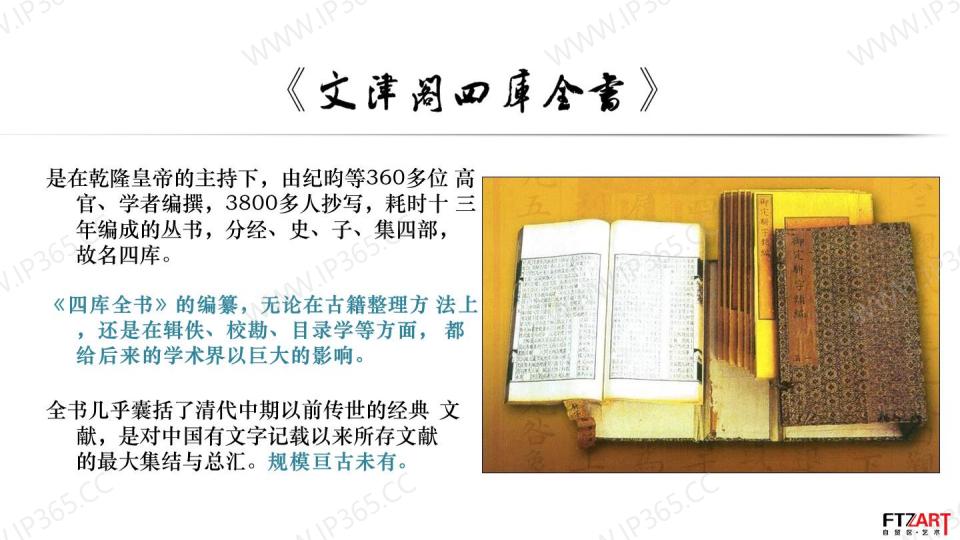 《文津阁四库全书》
是在乾隆皇帝的主持下，由纪昀等360多位 高
官、学者编撰，3800多人抄写，耗时十 三
年编成的丛书，分经、史、子、集四部，
故名四库。
《四库全书》的编纂，无论在古籍整理方 法上
，还是在辑佚、校勘、目录学等方面， 都
给后来的学术界以巨大的影响。
全书几乎囊括了清代中期以前传世的经典 文
献，是对中国有文字记载以来所存文献
的最大集结与总汇。规模亘古未有。
御定駢字類編
御定駢字類編
FTZART
自贸区·艺术
WWW.IP365.CC